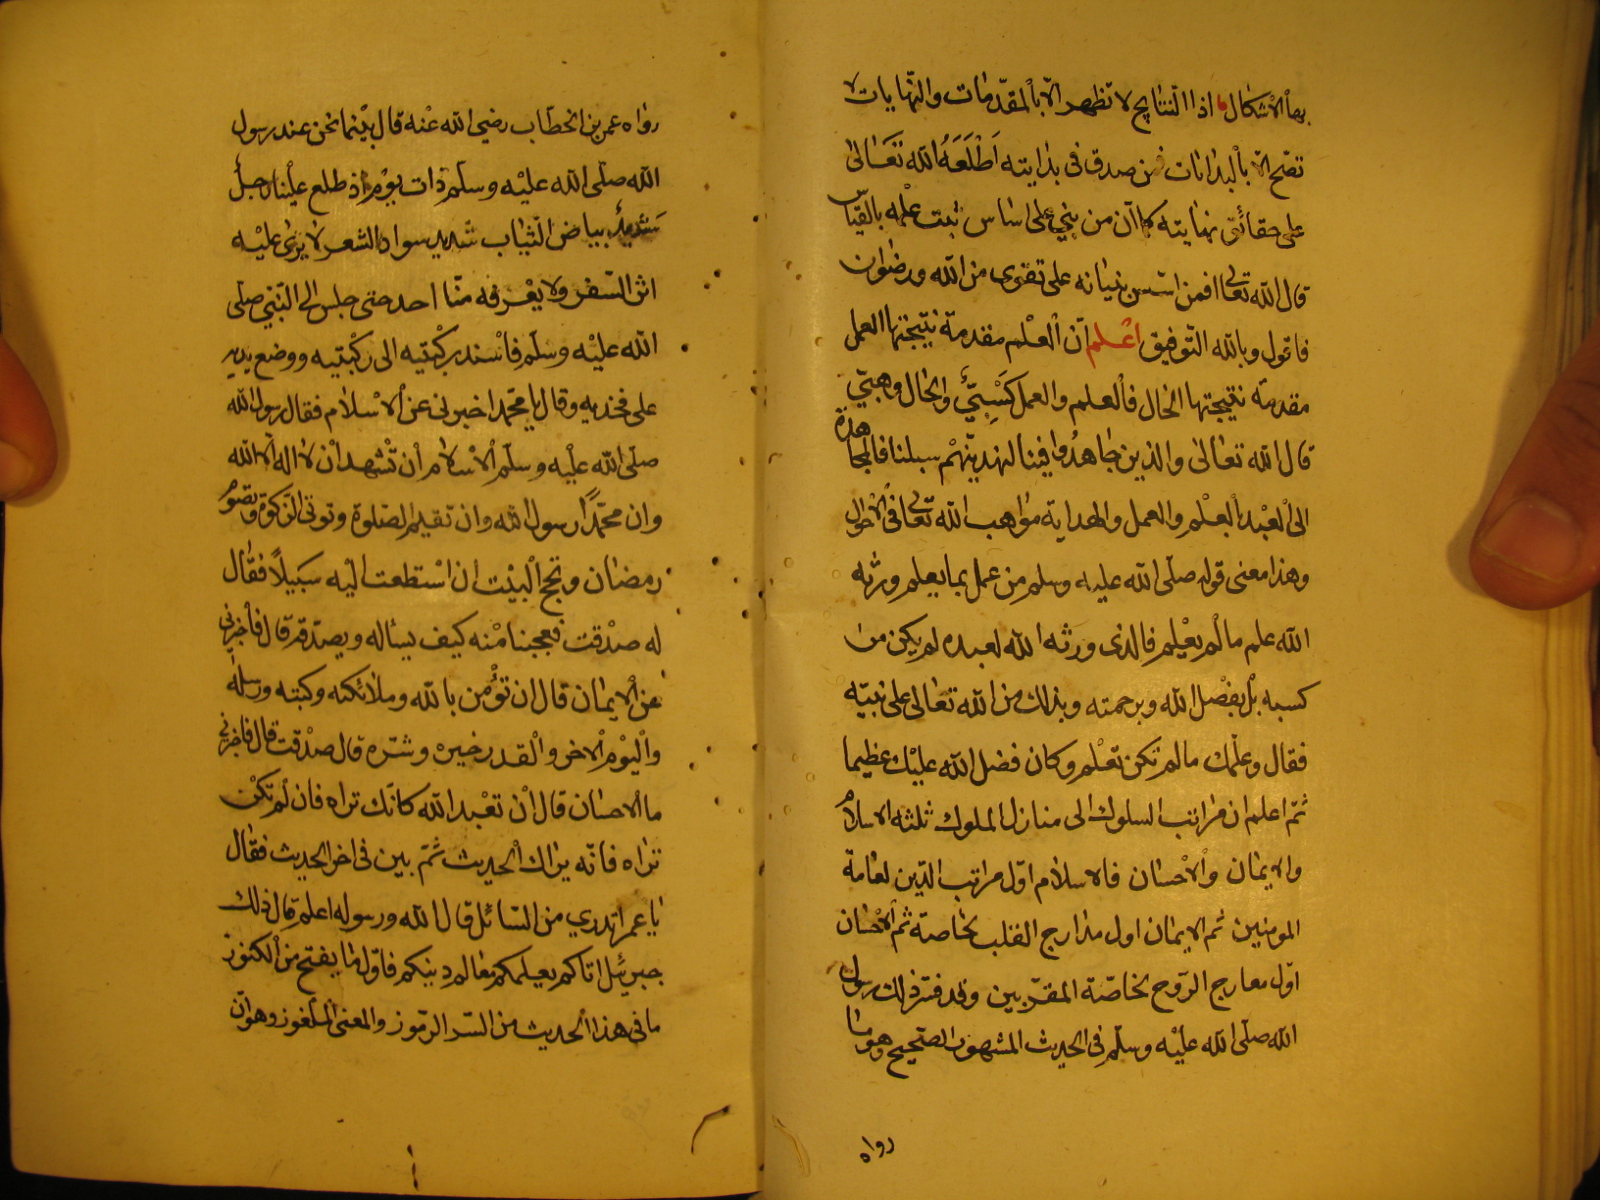 بها الاشكال اذا النتايج لا تظهر الا بالمقدمات والنهايات لا
تصح الا بالبدايات فمن صدق فى بدايته اطلعه الله تعالى
على حقائق نهايته كما ان من بني على اساس ثبت علمه بالقياس
قال الله تعالى افمن اسس بنيانه على تقوى من الله ورضوان
فاقول وبالله التوفيق اعلم ان العلم مقدمة نتيجتها العمل
مقدمة نتيجتها الحال فالعلم والعمل كسبيّ والحال وهبيّ
قال الله تعالى والذين جاهدوا فينا لنهدينهم سبلنا فالمجاهدة
الى العبد بالعلم والعمل والهداية مواهب الله تعالى فى الاحوال
وهذا معنى قوله صلى الله عليه وسلم من عمل بما يعلم ورثه
الله علم ما لم يعلم فالذى ورثه الله لعبده لم يكن من
كسبه بل بفضل الله وبرحمته وبذلك من الله تعالى على نبيّه
فقال وعلمك ما لم تكن تعلم وكان فضل الله عليك عظيما
ثم اعلم ان مراتب السلوك الى منازل الملوك ثلثه الاسلام
والايمان والاحسان فالاسلام اول مراتب الدين لعامة
المومنين ثم الايمان اول مدارج القلب لخاصة ثم الاحسان
اول معارج الروح لخاصّة المقربين وقد فسّر ذلك رسول
الله صلى الله عليه وسلم فى الحديث المشهور الصحيح وهو ما
رواه
رواه عمر بن الخطاب رضى الله عنه قال بينما نحن عند رسول
الله صلى الله عليه وسلم ذات يوم اذ طلع علينا رجل
شديد بياض الثياب شديد سواد الشعر لا يرى عليه
اثر السفر ولا يعرفه منا احد حتى جلس الى النبي صلى
الله عليه وسلم فاسند ركبتيه الى ركبتيه ووضع يديه
على فخذيه وقال يا محمد اخبرنى عن الاسلام فقال رسول الله
صلى الله عليه وسلم الاسلام ان تشهد ان لا اله الا الله
وان محمدًا رسول الله وان تقيم الصلوة وتوتى الزكوة وتصوم
رمضان وتحج البيت ان استطعت اليه سبيلاً فقال
له صدقت فعجبنا منه كيف يسأله ويصدقه قال فأخبرنى
عن الايمان قال ان تؤمن بالله وملائكته وكتبه ورسله
واليوم الاخر والقدر خيره وشره قال صدقت قال فاخبرنى
ما الاحسان قال ان تعبد الله كانك تراه فان لم تكن
تراه فانه يراك الحديث ثم بين فى اخر الحديث فقال
يا عمر اتدري من السائل قال الله ورسوله اعلم قال ذلك
جبرئيل اتاكم يعلمكم معالم دينكم فاول ما يفتح من الكنوز
ما فى هذا الحديث من السر المرموز والمعنى الملغوز وهو ان